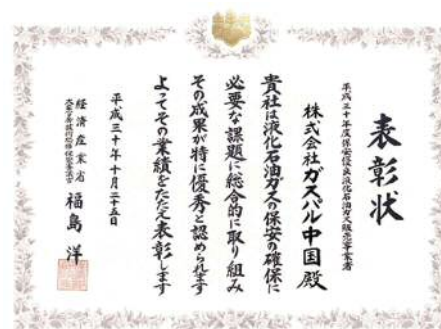 表彰状
平成三十年度保安優良液化石油ガス販売事業者
株式会社ガスパル中国殿
貴社は液化石油ガスの保安の確保に
必要な課題に総合的に取り組み
その成果が特に優秀と認められます
よってその業績をたたえ表彰します
平成三十年十月二十五日
経済産業省
福島洋